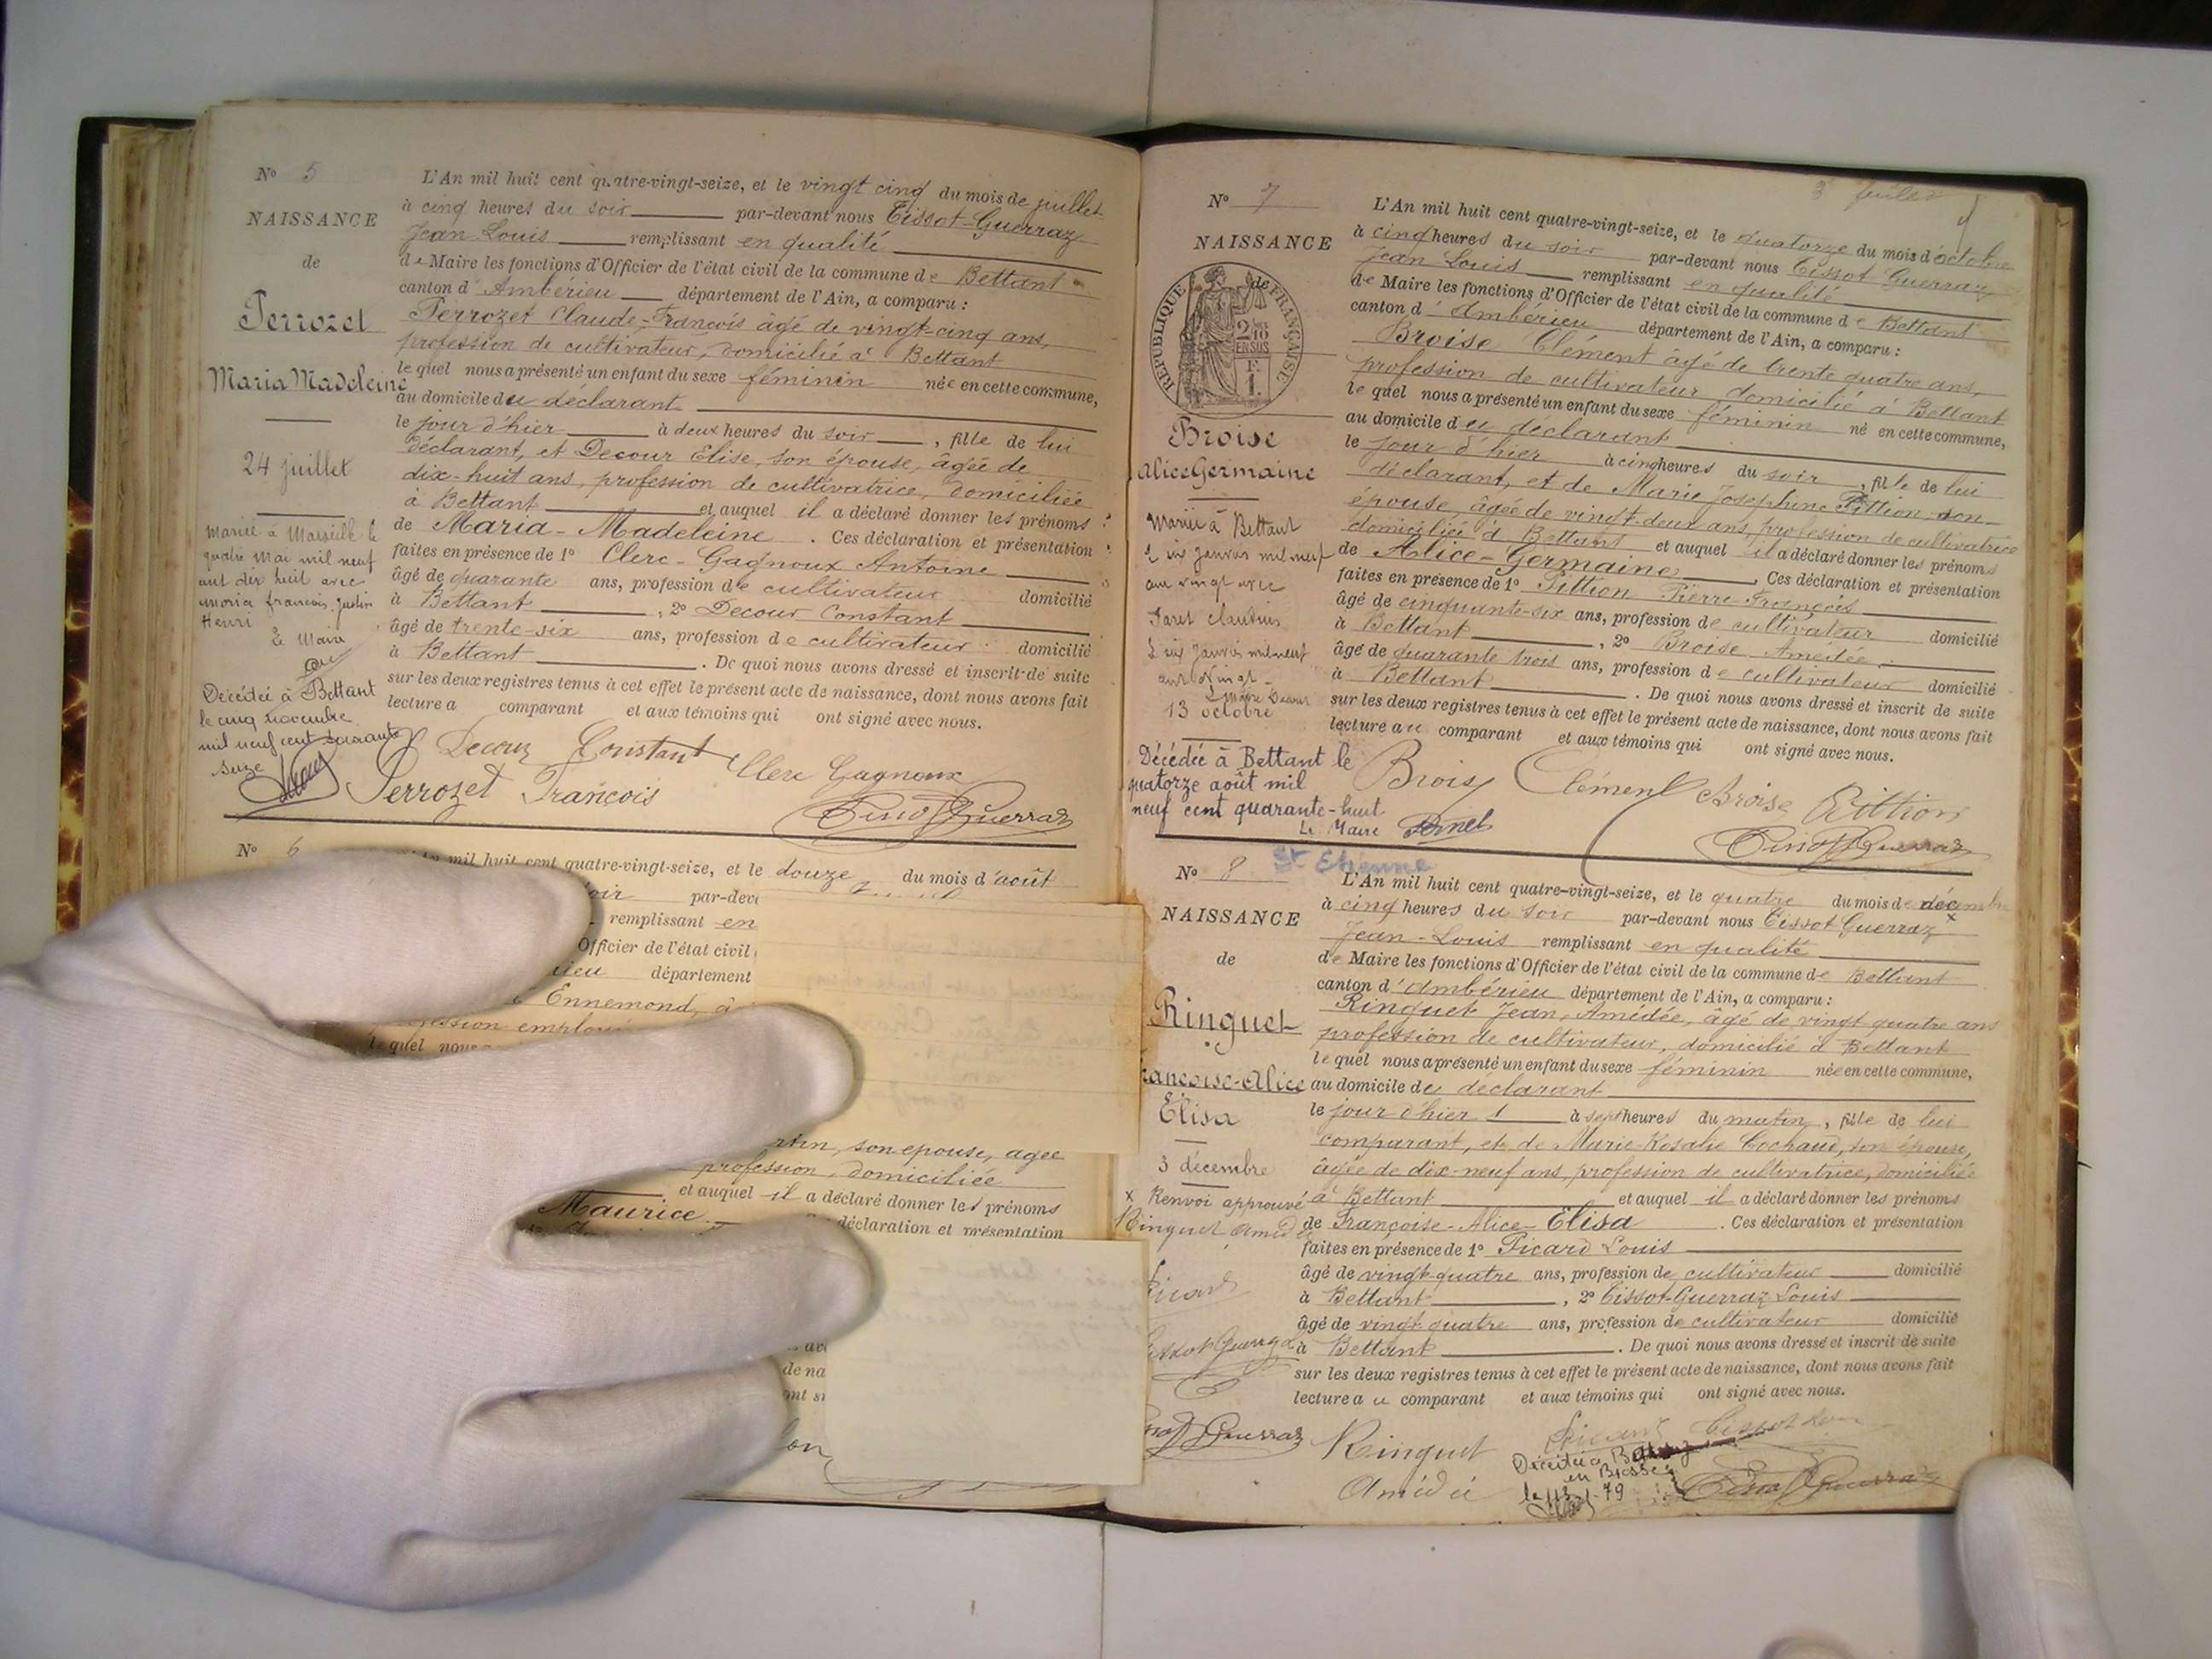 N° 5
NAISSANCE
de
Perrozet
Maria Madeleine
24 juillet
Mariée à Marseille le
quatre mai mil neuf
cent dix huit avec
François Justin
Henri
Le Maire
Décédée à Bettant
le cinq novembre
mil neuf cent soixante
seize
L'An mil huit cent quatre-vingt-seize, et le vingt cinq du mois de juillet
à cinq heures du soir par-devant nous Tissot-Guerraz
Jean Louis remplissant en qualité
de Maire les fonctions d'Officier de l'état civil de la commune de Bettant
canton d'Ambérieu département de l'Ain, a comparu :
Perrozet Claude-François âgé de vingt-cinq ans,
profession de cultivateur, domicilié à Bettant
lequel nous a présenté un enfant du sexe féminin née en cette commune,
au domicile du déclarant
le jour d'hier à deux heures du soir, fille de lui
déclarant, et Decour Elise, son épouse, âgée de
dix-huit ans, profession de cultivatrice, domiciliée
à Bettant et auquel il a déclaré donner les prénoms
de Maria-Madeleine. Ces déclaration et présentation
faites en présence de 1° Clerc-Gagnoux Antoine
âgé de quarante ans, profession de cultivateur domicilié
à Bettant, 2° Decour Constant
âgé de trente-six ans, profession de cultivateur domicilié
à Bettant. De quoi nous avons dressé et inscrit de suite
sur les deux registres tenus à cet effet le présent acte de naissance, dont nous avons fait
lecture a comparant et aux témoins qui ont signé avec nous.
Decour Constant Clerc Gagnoux
Perrozet François
Tissot Guerraz
N° 6
mil huit cent quatre-vingt-seize, et le douze du mois d'août
soir par-dev
remplissant en
Officier de l'état civil
ieu département
Ennemond, â
profession employé
lequel nous a
rtin, son épouse, âgée
profession, domiciliée
et auquel il a déclaré donner les prénoms
Maurice
déclaration et présentation
av
de na
ont si
N° 7
NAISSANCE
de
RÉPUBLIQUE FRANÇAISE
2/10 EN SUS
F. 1.
Broise
Alice Germaine
Mariée à Bettant
le six janvier mil neuf
cent vingt avec
Faret Claudius
Le six janvier mil neuf
cent vingt
Le Maire Decour
13 octobre
Décédée à Bettant le
quatorze août mil
neuf cent quarante-huit
Le Maire Pernet
L'An mil huit cent quatre-vingt-seize, et le quatorze du mois d'octobre
à cinq heures du soir par-devant nous Tissot Guerraz
Jean Louis remplissant en qualité
de Maire les fonctions d'Officier de l'état civil de la commune de Bettant
canton d'Ambérieu département de l'Ain, a comparu :
Broise Clément âgé de trente quatre ans,
profession de cultivateur domicilié à Bettant
lequel nous a présenté un enfant du sexe féminin né en cette commune,
au domicile du déclarant
le jour d'hier à cinq heures du soir, fille de lui
déclarant, et de Marie Josephine Pittion son
épouse, âgée de vingt-deux ans, profession de cultivatrice
domiciliée à Bettant et auquel il a déclaré donner les prénoms
de Alice-Germaine. Ces déclaration et présentation
faites en présence de 1° Pittion Pierre-François
âgé de cinquante-six ans, profession de cultivateur domicilié
à Bettant, 2° Broise Amédée
âgé de quarante trois ans, profession de cultivateur domicilié
à Bettant. De quoi nous avons dressé et inscrit de suite
sur les deux registres tenus à cet effet le présent acte de naissance, dont nous avons fait
lecture au comparant et aux témoins qui ont signé avec nous.
Broise Clément Broise Pittion
Tissot Guerraz
St Etienne
N° 8
NAISSANCE
de
Ringuet
Françoise-Alice
Elisa
3 décembre
x Renvoi approuvé
Ringuet Amédée
Picard
Tissot Guerraz
Tissot Guerraz
L'An mil huit cent quatre-vingt-seize, et le quatre du mois de décembre
x
à cinq heures du soir par-devant nous Tissot Guerraz
Jean-Louis remplissant en qualité
de Maire les fonctions d'Officier de l'état civil de la commune de Bettant
canton d'Ambérieu département de l'Ain, a comparu :
Ringuet Jean, Amédée, âgé de vingt quatre ans
profession de cultivateur, domicilié à Bettant
lequel nous a présenté un enfant du sexe féminin née en cette commune,
au domicile du déclarant
le jour d'hier à sept heures du matin, fille de lui
comparant, et de Marie-Rosalie Cochaud, son épouse,
âgée de dix-neuf ans, profession de cultivatrice, domiciliée
à Bettant et auquel il a déclaré donner les prénoms
de Françoise-Alice-Elisa. Ces déclaration et présentation
faites en présence de 1° Picard Louis
âgé de vingt-quatre ans, profession de cultivateur domicilié
à Bettant, 2° Tissot-Guerraz Louis
âgé de vingt quatre ans, profession de cultivateur domicilié
à Bettant. De quoi nous avons dressé et inscrit de suite
sur les deux registres tenus à cet effet le présent acte de naissance, dont nous avons fait
lecture au comparant et aux témoins qui ont signé avec nous.
Ringuet Picard Tissot Louis
Amédée
Décédée à Bourg
en Bresse
le 113-1-79
Tissot Guerraz